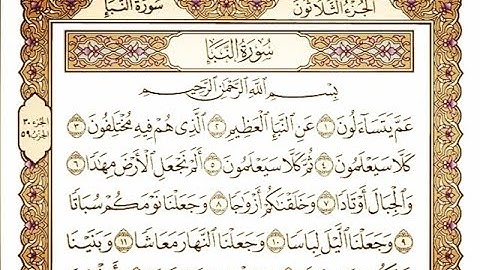 الجزء الثلاثون
سورة النبإ
سُورَةُ النَّبَإِ
بِسْمِ اللَّهِ الرَّحْمَٰنِ الرَّحِيمِ
عَمَّ يَتَسَاءَلُونَ ١ عَنِ النَّبَإِ الْعَظِيمِ ٢ الَّذِي هُمْ فِيهِ مُخْتَلِفُونَ ٣
كَلَّا سَيَعْلَمُونَ ٤ ثُمَّ كَلَّا سَيَعْلَمُونَ ٥ أَلَمْ نَجْعَلِ الْأَرْضَ مِهَٰدًا ٦
وَالْجِبَالَ أَوْتَادًا ٧ وَخَلَقْنَاكُمْ أَزْوَاجًا ٨ وَجَعَلْنَا نَوْمَكُمْ سُبَاتًا
٩ وَجَعَلْنَا الَّيْلَ لِبَاسًا ١٠ وَجَعَلْنَا النَّهَارَ مَعَاشًا ١١ وَبَنَيْنَا
الجزء ٣٠
الحزب ٥٩